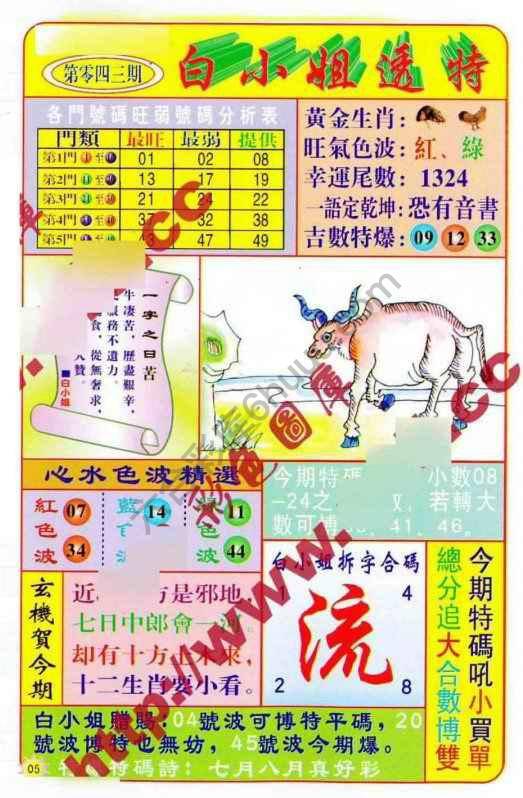 第零四三期
白小姐透特
各門號碼旺弱號碼分析表
門類 最旺 最弱 提供
第1門 01 02 08
第2門 13 17 19
第3門 21 24 22
第4門 37 32 38
第5門 43 47 49
黃金生肖：
旺氣色波：紅、綠
幸運尾數：1324
一語定乾坤：恐有音書
吉數特爆：09 12 33
一字之曰苦
牛凄苦，歷盡艱辛，
服務不遺力。
食，從無奢求，
人贊。
■白小姐
心水色波精選
紅色波 07 34
藍 14
波
11
色波 44
今期特碼 小數08
-24之 若轉大
數可博 41、46。
玄機賀今期
近 方是邪地，
七日中郎會一河。
却有十方 未來，
十二生肖要小看。
白小姐拆字合碼
1 4
流
2 8
今期特碼吼小買單
總分追大合數博雙
白小姐賭賜：04號波可博特平碼，20
號波博特也無妨，45號波今期爆。
特碼詩：七月八月真好彩
05
彩色圖庫
http://www.
.cc